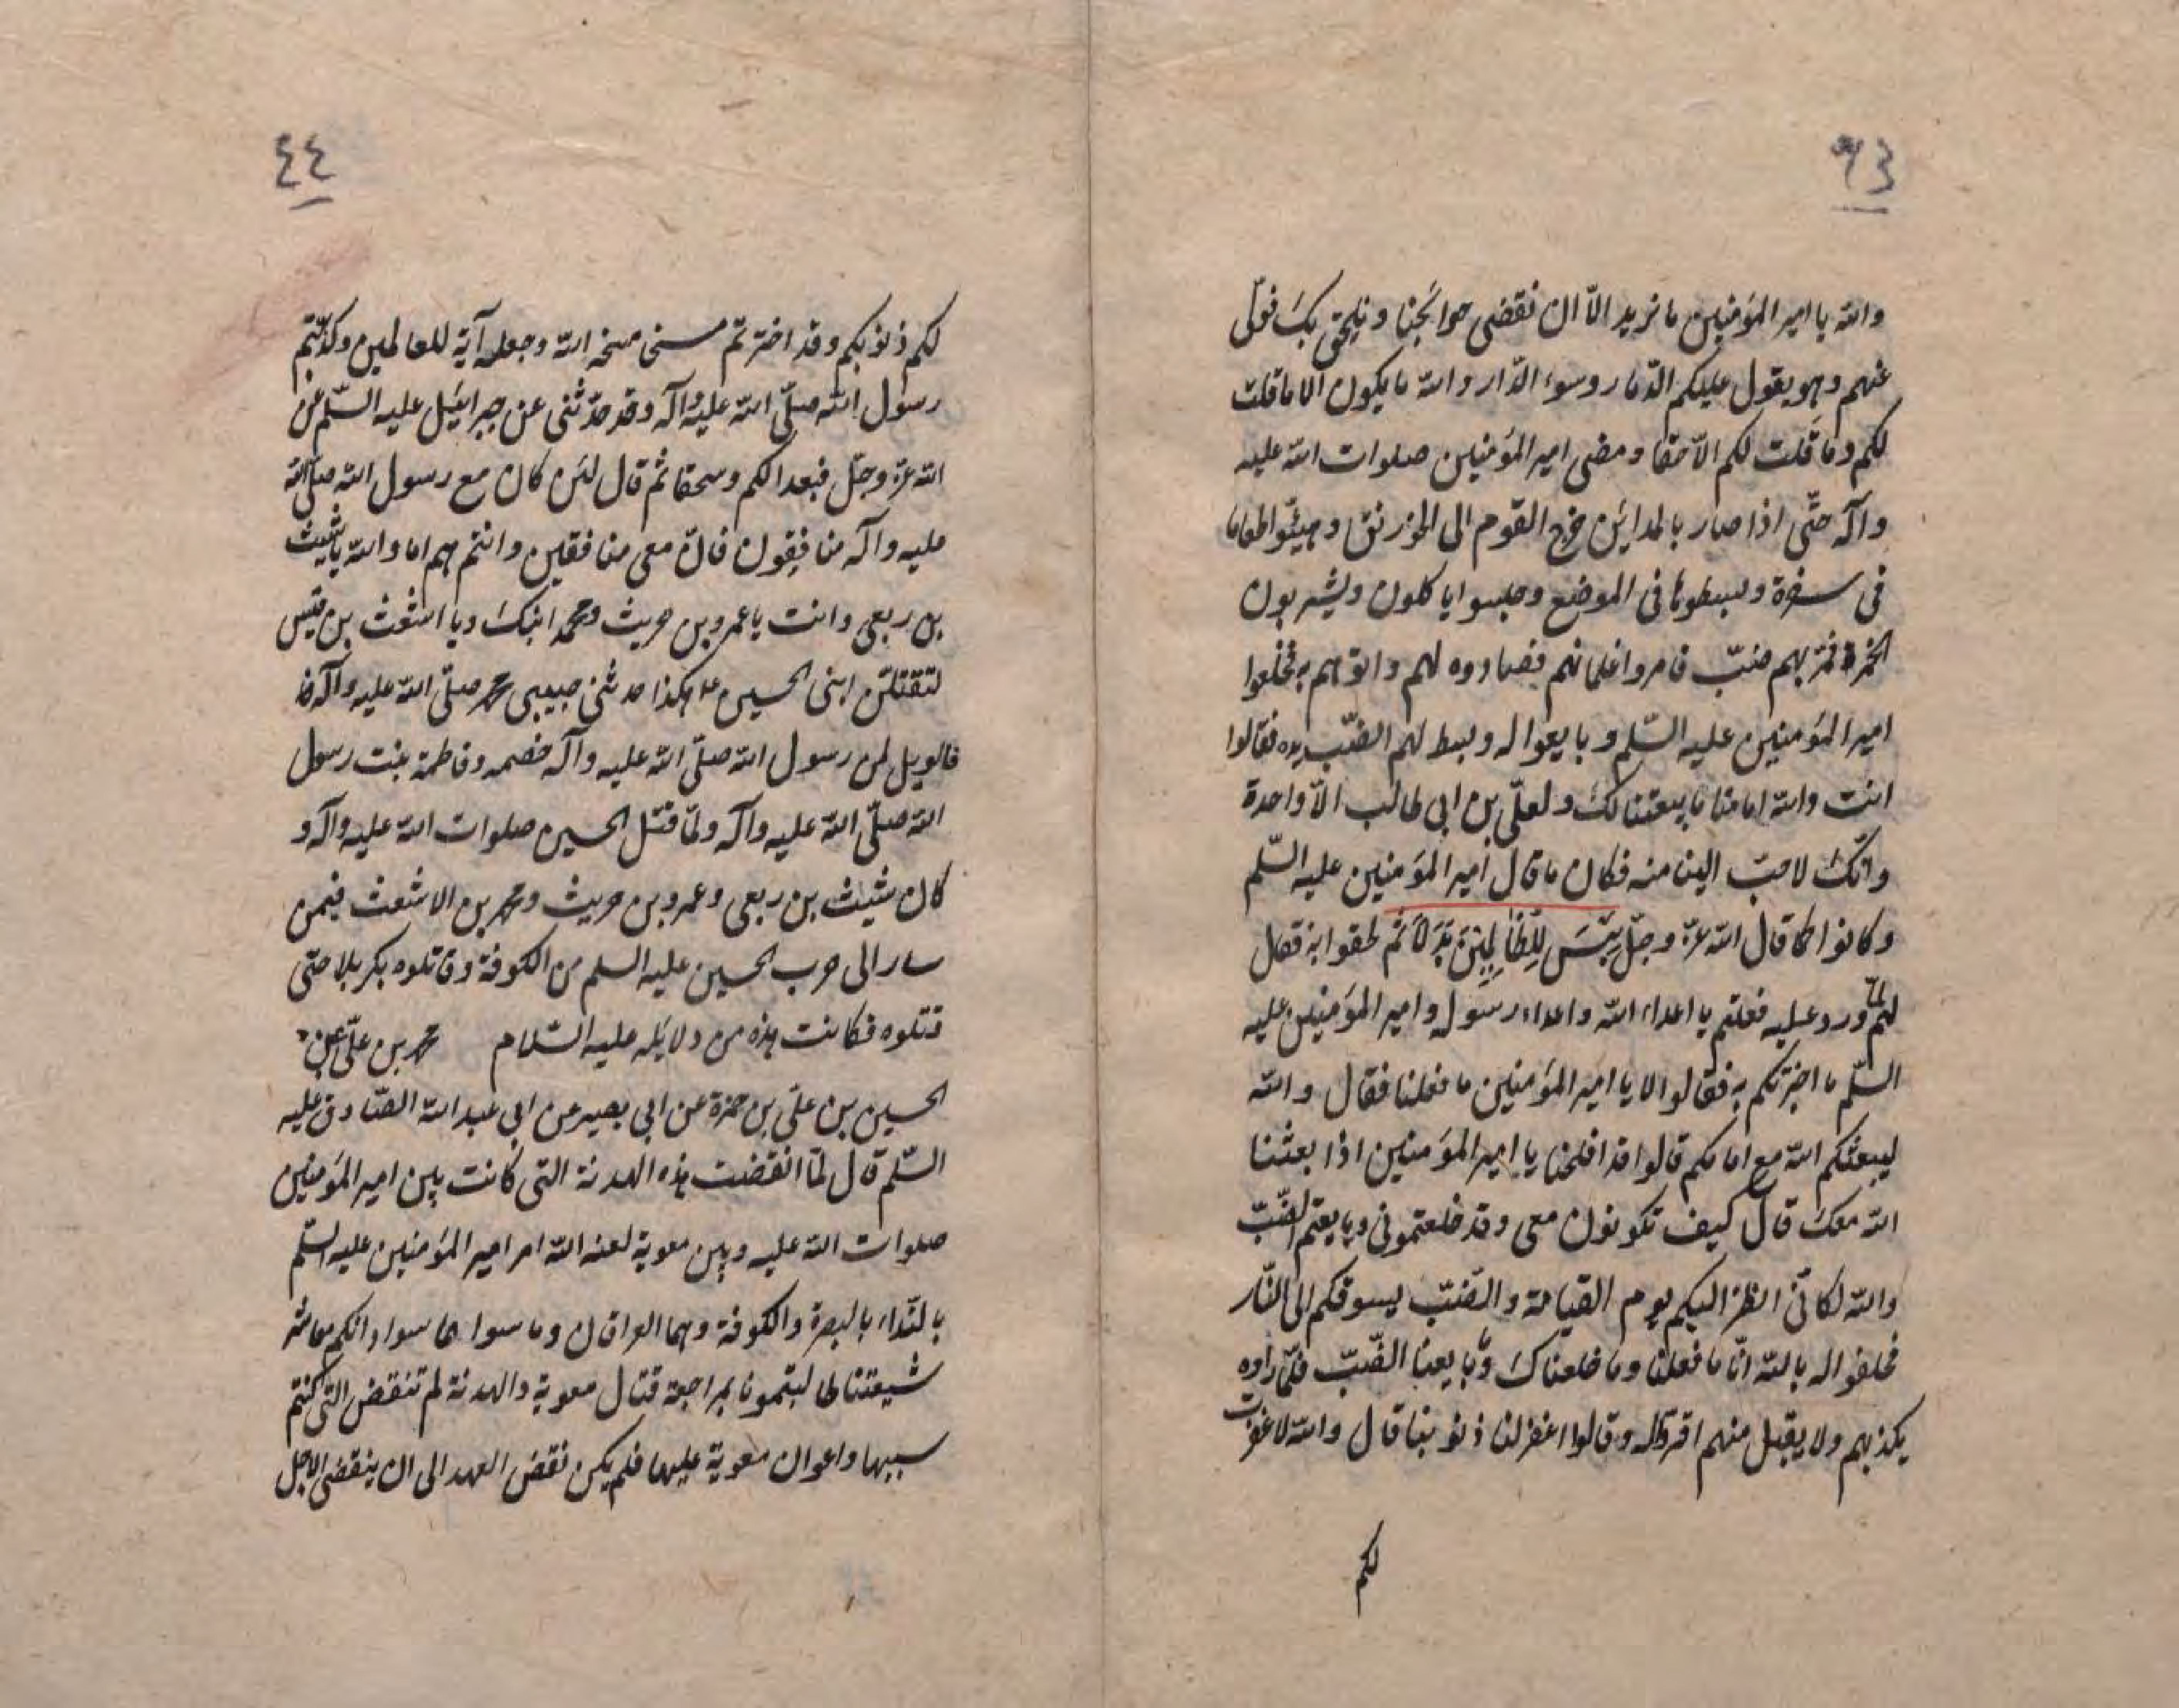 ٩٣
والله يا امير المؤمنين ما نريد الا ان نقضى حوائجنا ونلحق بك فولّى
عنهم وهو يقول عليكم الدمار وسوء الدار والله ما يكون الا ما قلت
لكم وما قلت لكم الا حقا ومضى امير المؤمنين صلوات الله عليه
وآله حتّى اذا صار بالمداين خرج القوم الى الخورنق وهيئوا طعاما
فى سفرة وبسطوها فى الموضع وجلسوا ياكلون ويشربون
الخمر فمرّ بهم ضبّ فامروا غلمانهم فصادوه لهم واتوهم به فخلعوا
امير المؤمنين عليه السّلم وبايعوا له وبسط لهم الضّب يده فقالوا
انت والله امامنا ما بيعتنا لك ولعلّى بن ابى طالب الّا واحدة
وانّك لاحبّ الينا منه فكان ما قال امير المؤمنين عليه السّلم
وكانوا كما قال الله عزّ وجلّ بِئسَ لِلظّالِمِينَ بَدَلًا ثم لحقوا به فقال
لهم لمّا ورد عليه فعلتم يا اعداء الله واعداء رسوله وامير المؤمنين عليه
السّلم ما اخبرتكم به فقالوا لا يا امير المؤمنين ما فعلنا فقال والله
ليبعثكم الله مع امامكم قالوا قد افلحنا يا امير المؤمنين اذا بعثنا
الله معك قال كيف تكونون معى وقد خلعتمونى وبايعتم الضّبّ
والله لكانّى انظر اليكم يوم القيامة والضّبّ يسوقكم الى النّار
فحلفوا له بالله انّا ما فعلنا وما خلعناك وما بايعنا الضّبّ فلمّا راوه
يكذبهم ولا يقبل منهم اقرّوا له وقالوا اغفر لنا ذنوبنا قال والله لا غفرت
لكم
٤٤
لكم ذنوبكم وقد اخترتم مسخى مسخه الله وجعله آية للعالمين وكذّبتم
رسول الله صلّى الله عليه وآله وقد حدّثنى عن جبرائيل عليه السّلم عن
الله عزّ وجلّ فبعدا لكم وسحقا ثم قال لئن كان مع رسول الله صلّى الله
عليه وآله منافقون فانّ معى منافقين وانتم هم اما والله يا شيث
بن ربعى وانت يا عمرو بن حريث ومحمد ابنك ويا اشعث بن قيس
لتقتلنّ ابنى الحسين ع هكذا حدثنى حبيبى محمد صلّى الله عليه وآله
فالويل لمن رسول الله صلّى الله عليه وآله خصمه وفاطمة بنت رسول
الله صلّى الله عليه وآله ولمّا قتل الحسين صلوات الله عليه وآله و
كان شيث بن ربعى وعمرو بن حريث ومحمد بن الاشعث فيمن
سار الى حرب الحسين عليه السلم من الكوفة وقاتلوه بكربلا حتى
قتلوه فكانت هذه من دلايله عليه السّلام محمد بن علىّ عن
الحسين بن علىّ بن حمزة عن ابى بصير عن ابى عبد الله الصّادق عليه
السّلم قال لمّا انقضت هذه الهدنة التى كانت بين امير المؤمنين
صلوات الله عليه وبين معوية لعنه الله امر امير المؤمنين عليه السّلم
بالنّداء بالبصرة والكوفة وهما العراقان وما سواهما سوا وانكم معاشر
شيعتنا طالبتمونا بمراجعة قتال معوية والهدنة لم تنقض التى كنتم
سببها واعوان معوية عليها فلم يكن نقض العهد الى ان ينقضى الاجل